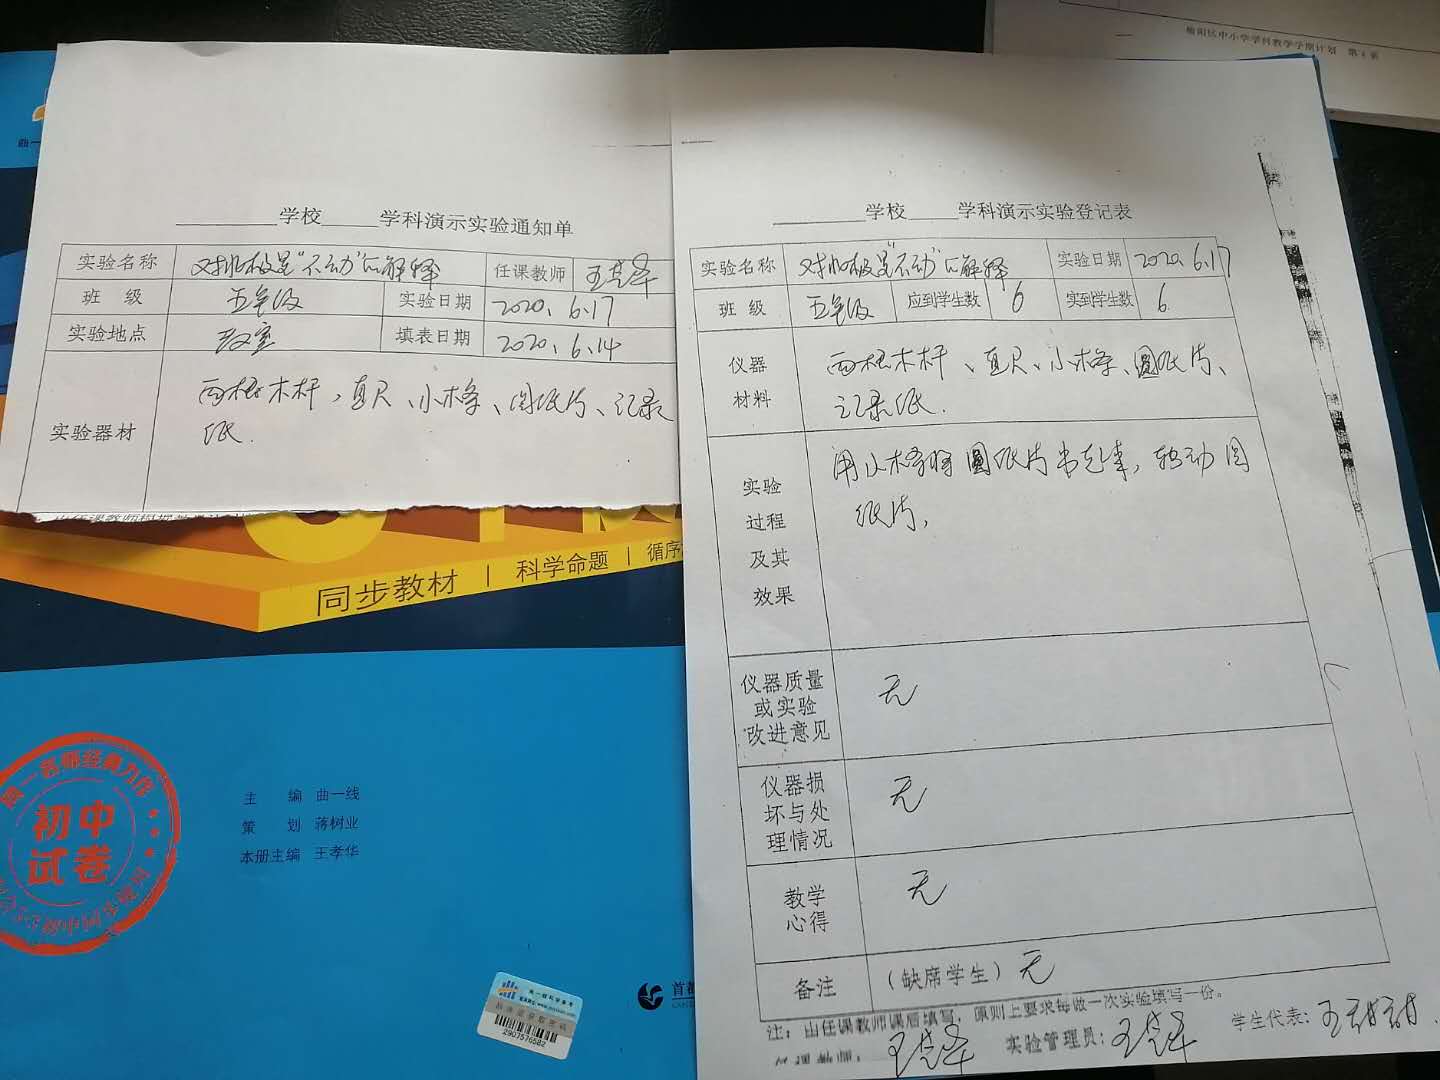 榆阳区中小学学科教学学期计划 第4页
曲一
学校 学科演示实验通知单
实验名称 对北极星"不动"的解释 任课教师
班 级 五年级 实验日期 2020.6.17
实验地点 教室 填表日期 2020.6.14
实验器材 两根木杆、直尺、小木棒、圆纸片、记录
纸.
学校 学科演示实验登记表
实验名称 对北极星"不动"的解释 实验日期 2020.6.17
班 级 五年级 应到学生数 6 实到学生数 6
仪器
材料
两根木杆、直尺、小木棒、圆纸片、
记录纸.
实验
过程
及其
效果
用小木棒将圆纸片 转动圆
纸片,
仪器质量
或实验
改进意见
无
仪器损
坏与处
理情况
无
教学
心得
无
备注 (缺席学生) 无
注：由任课教师课后填写，原则上要求每做一次实验填写一份。
任课教师： 实验管理员: 学生代表: 王甜甜
同步教材 | 科学命题 | 循序
初中
试卷
主 编 曲一线
策 划 蒋树业
本册主编 王孝华
首都
2907576582